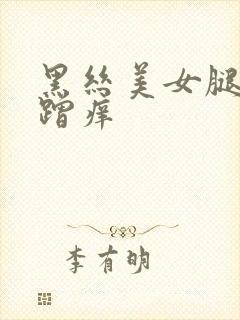 黑丝美女腿
蹭痒
李有明